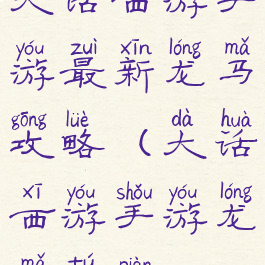 大话西游手
yóu zuì xīn lóng mǎ
游最新龙马
gōng lüè dà huà
攻略（大话
xī yóu shǒu yóu lóng
西游手游龙
mǎ tú piàn